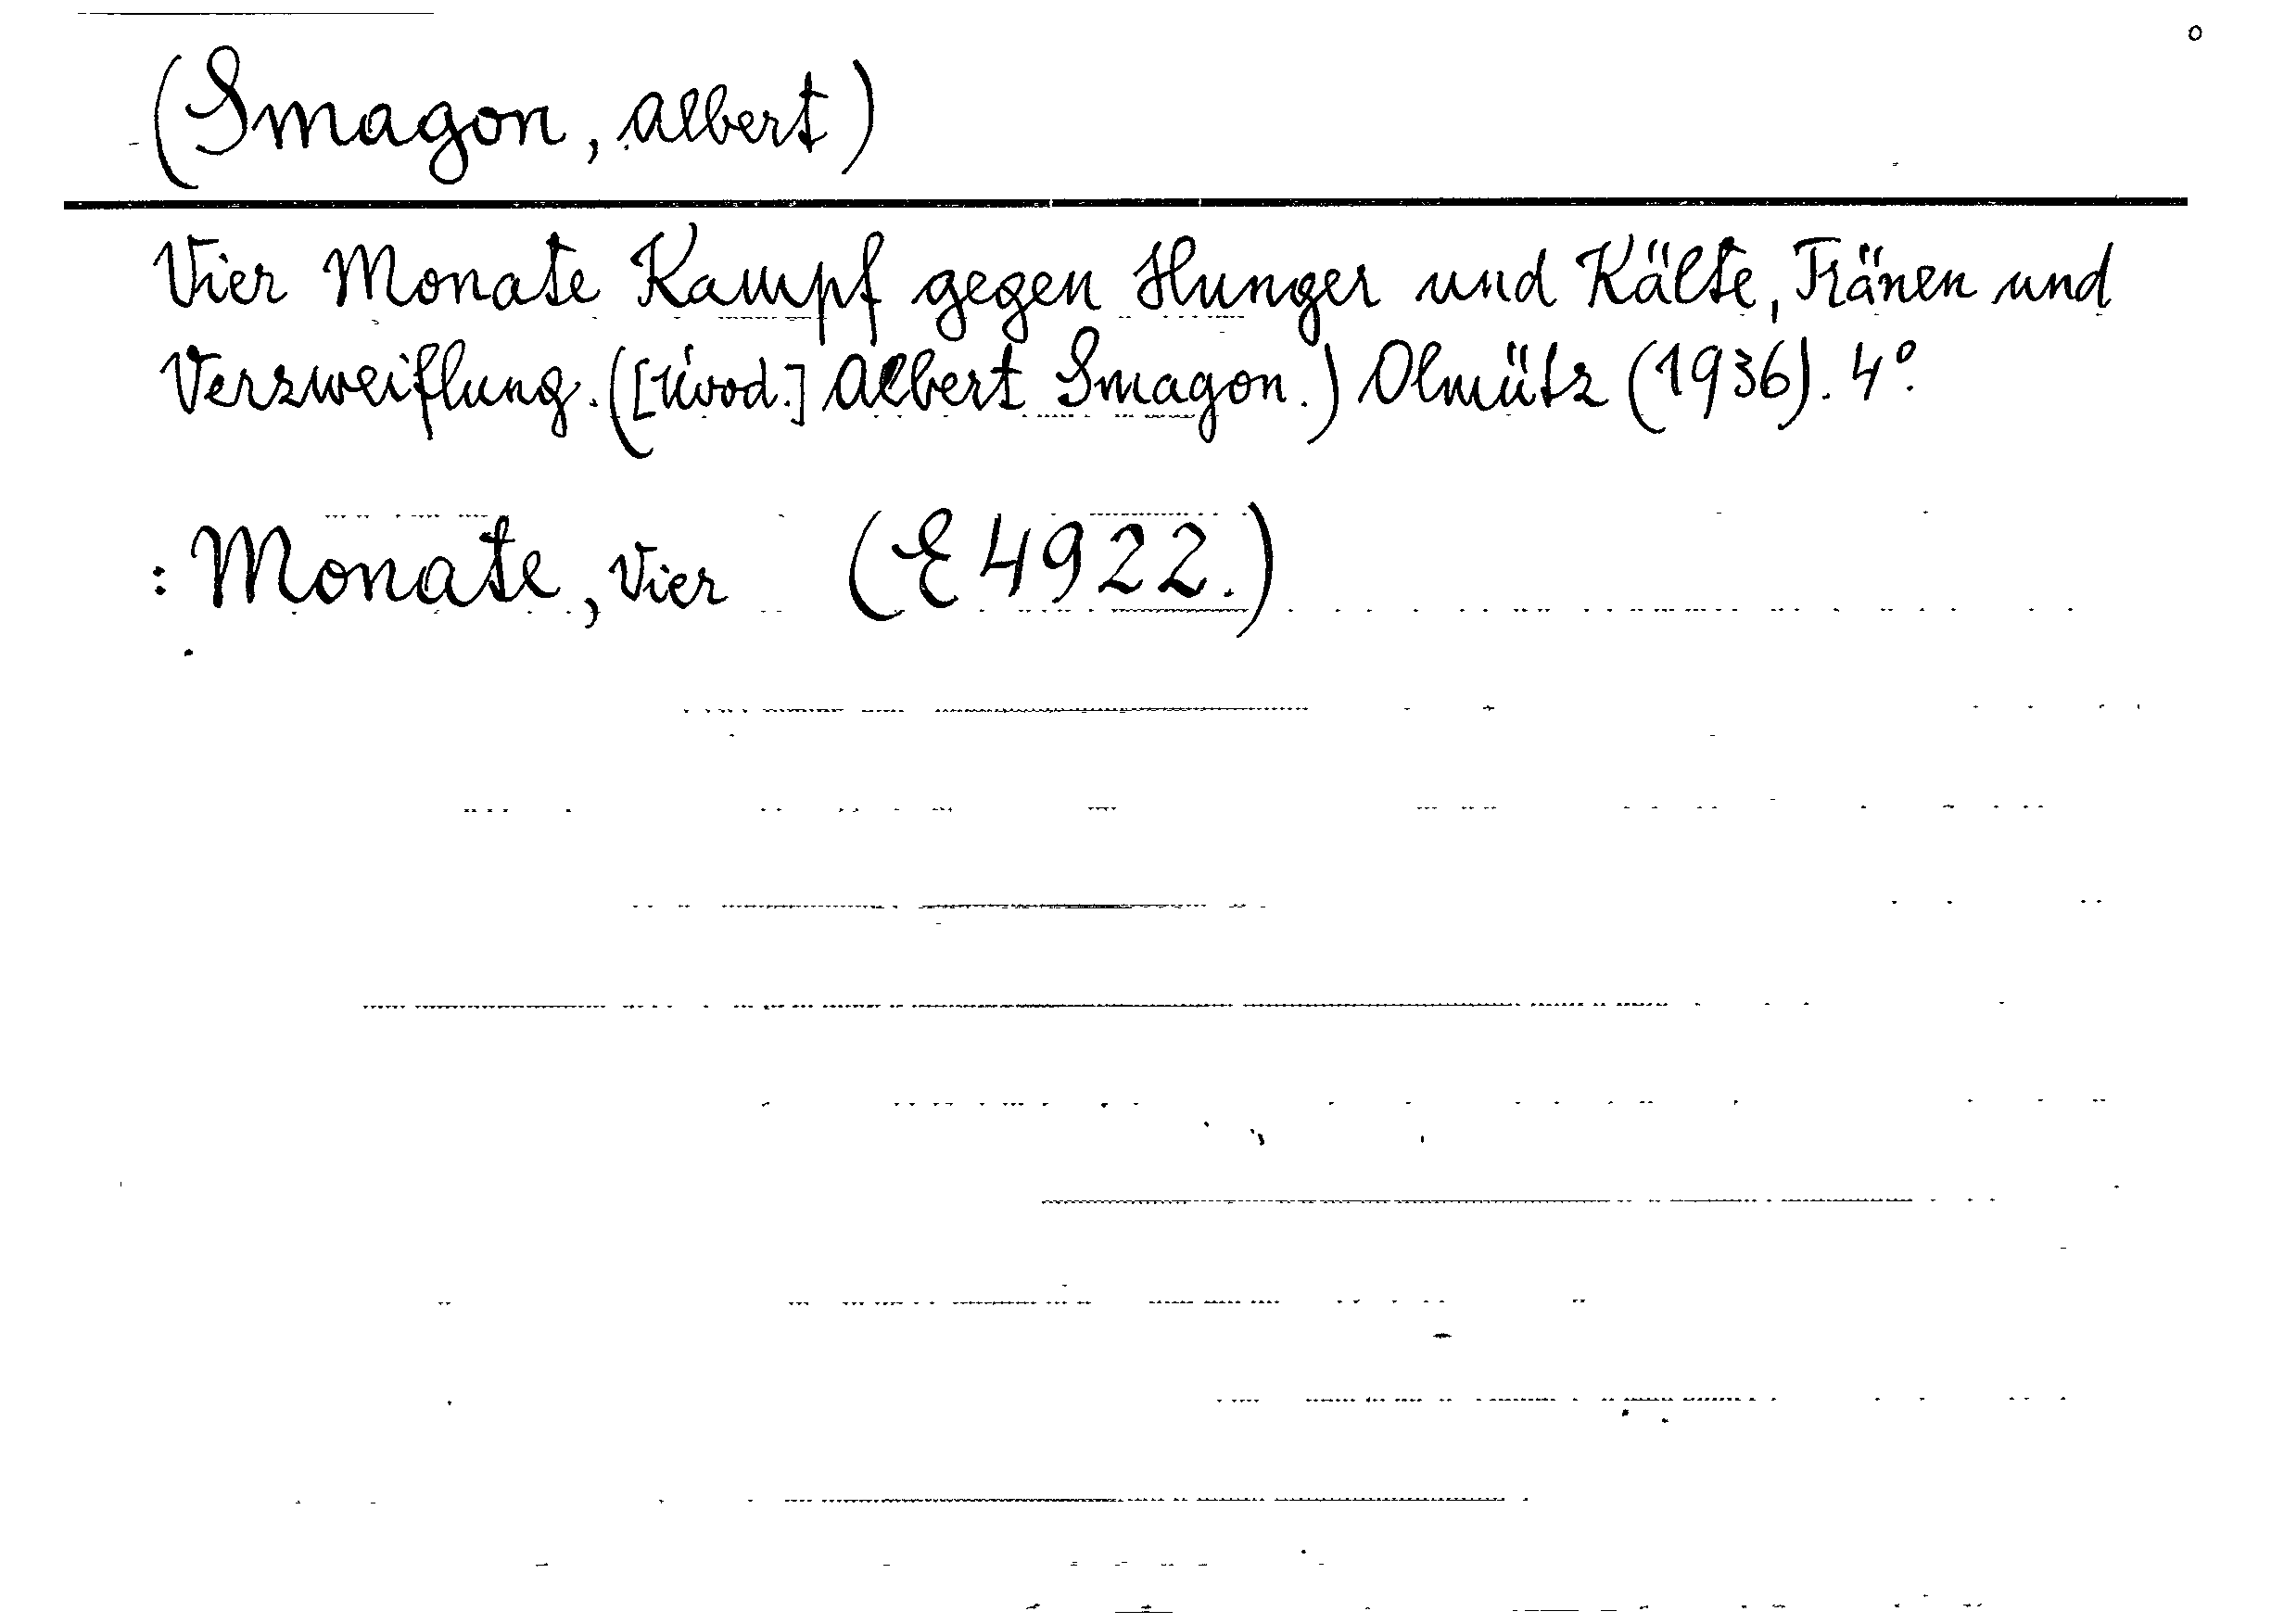 (Smagon, Albert)
Vier Monate Kampf gegen Hunger und Kälte, Tränen und
Verzweiflung. ([Úvod.] Albert Smagon.) Olmütz (1936). 4°.
: Monate, Vier (E 4922.)